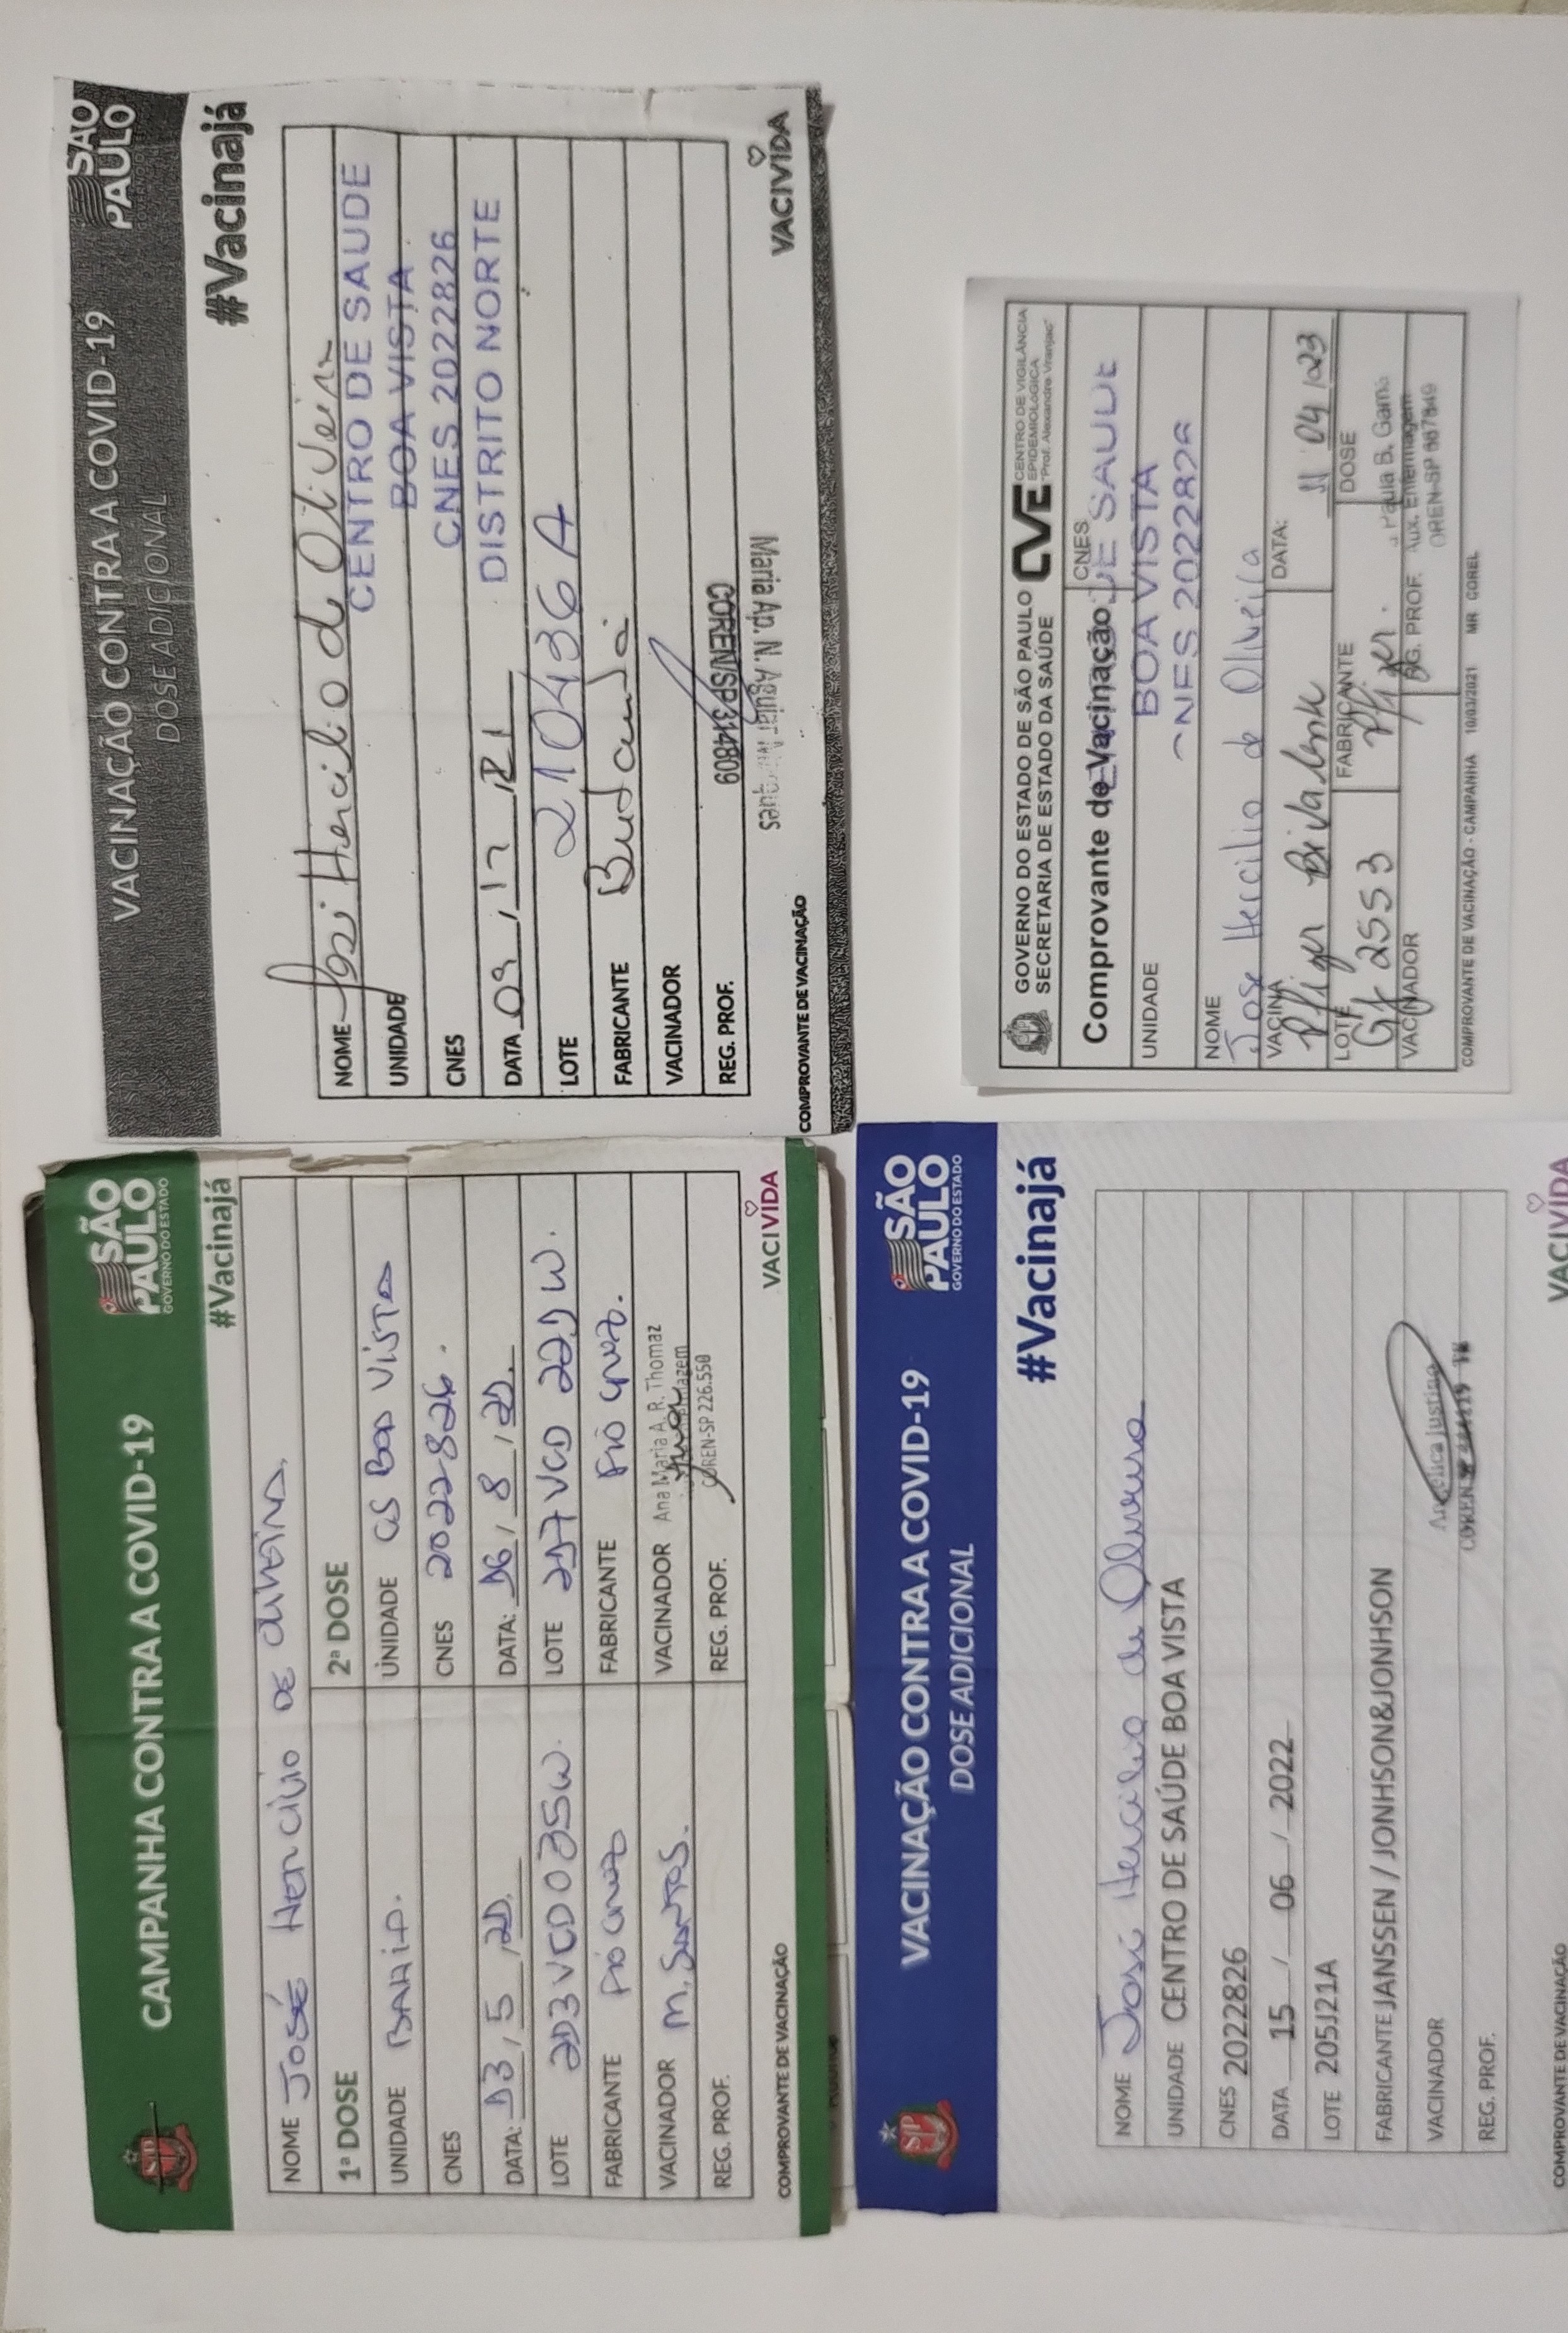 CAMPANHA CONTRA A COVID-19
SÃO PAULO
GOVERNO DO ESTADO
#Vacinajá
NOME JOSÉ HERCÍLIO DE OLIVEIRA
1ª DOSE
2ª DOSE
UNIDADE
UNIDADE CS BOA VISTA
CNES
CNES 2022826.
DATA: 13, 5, 21
DATA: 16, 8, 21.
LOTE 213VCD035W.
LOTE 217VCD 221W.
FABRICANTE FIO CRUZ
FABRICANTE FIO CRUZ.
VACINADOR M. SANTOS.
VACINADOR Ana Maria A. R. Thomaz
REG. PROF.
REG. PROF. COREN-SP 226.550
COMPROVANTE DE VACINAÇÃO
VACIVIDA
VACINAÇÃO CONTRA A COVID-19
DOSE ADICIONAL
SÃO PAULO
#Vacinajá
NOME José Hercilio de Oliveira
UNIDADE CENTRO DE SAUDE
BOA VISTA
CNES CNES 2022826
DISTRITO NORTE
DATA 09, 12, 21
LOTE 210436 A
FABRICANTE Butantã
VACINADOR
REG. PROF. COREN/SP314809
Maria Ap. N. Aguiar Marques
COMPROVANTE DE VACINAÇÃO
VACIVIDA
VACINAÇÃO CONTRA A COVID-19
DOSE ADICIONAL
SÃO PAULO
GOVERNO DO ESTADO
#Vacinajá
NOME José Hercilio de Oliveira
UNIDADE CENTRO DE SAÚDE BOA VISTA
CNES 2022826
DATA 15 / 06 / 2022
LOTE 205J21A
FABRICANTE JANSSEN / JONHSON&JONHSON
VACINADOR Angélica Justino
REG. PROF.
COMPROVANTE DE VACINAÇÃO
VACIVIDA
GOVERNO DO ESTADO DE SÃO PAULO
SECRETARIA DE ESTADO DA SAÚDE
CVE CENTRO DE VIGILÂNCIA
EPIDEMIOLÓGICA
"Prof. Alexandre Vranjac"
Comprovante de Vacinação
CNES
DE SAUDE
UNIDADE
BOA VISTA
CNES 2022826
NOME
Jose Hercilio de Oliveira
VACINA
Pfizer Bivalente
DATA:
11 04 23
LOTE
Gf 2553
FABRICANTE
Pfizer.
DOSE
VACINADOR
REG. PROF.
Paula B. Gama
Aux. Enfermagem
COMPROVANTE DE VACINAÇÃO - CAMPANHA 10/03/2021 MR COREL